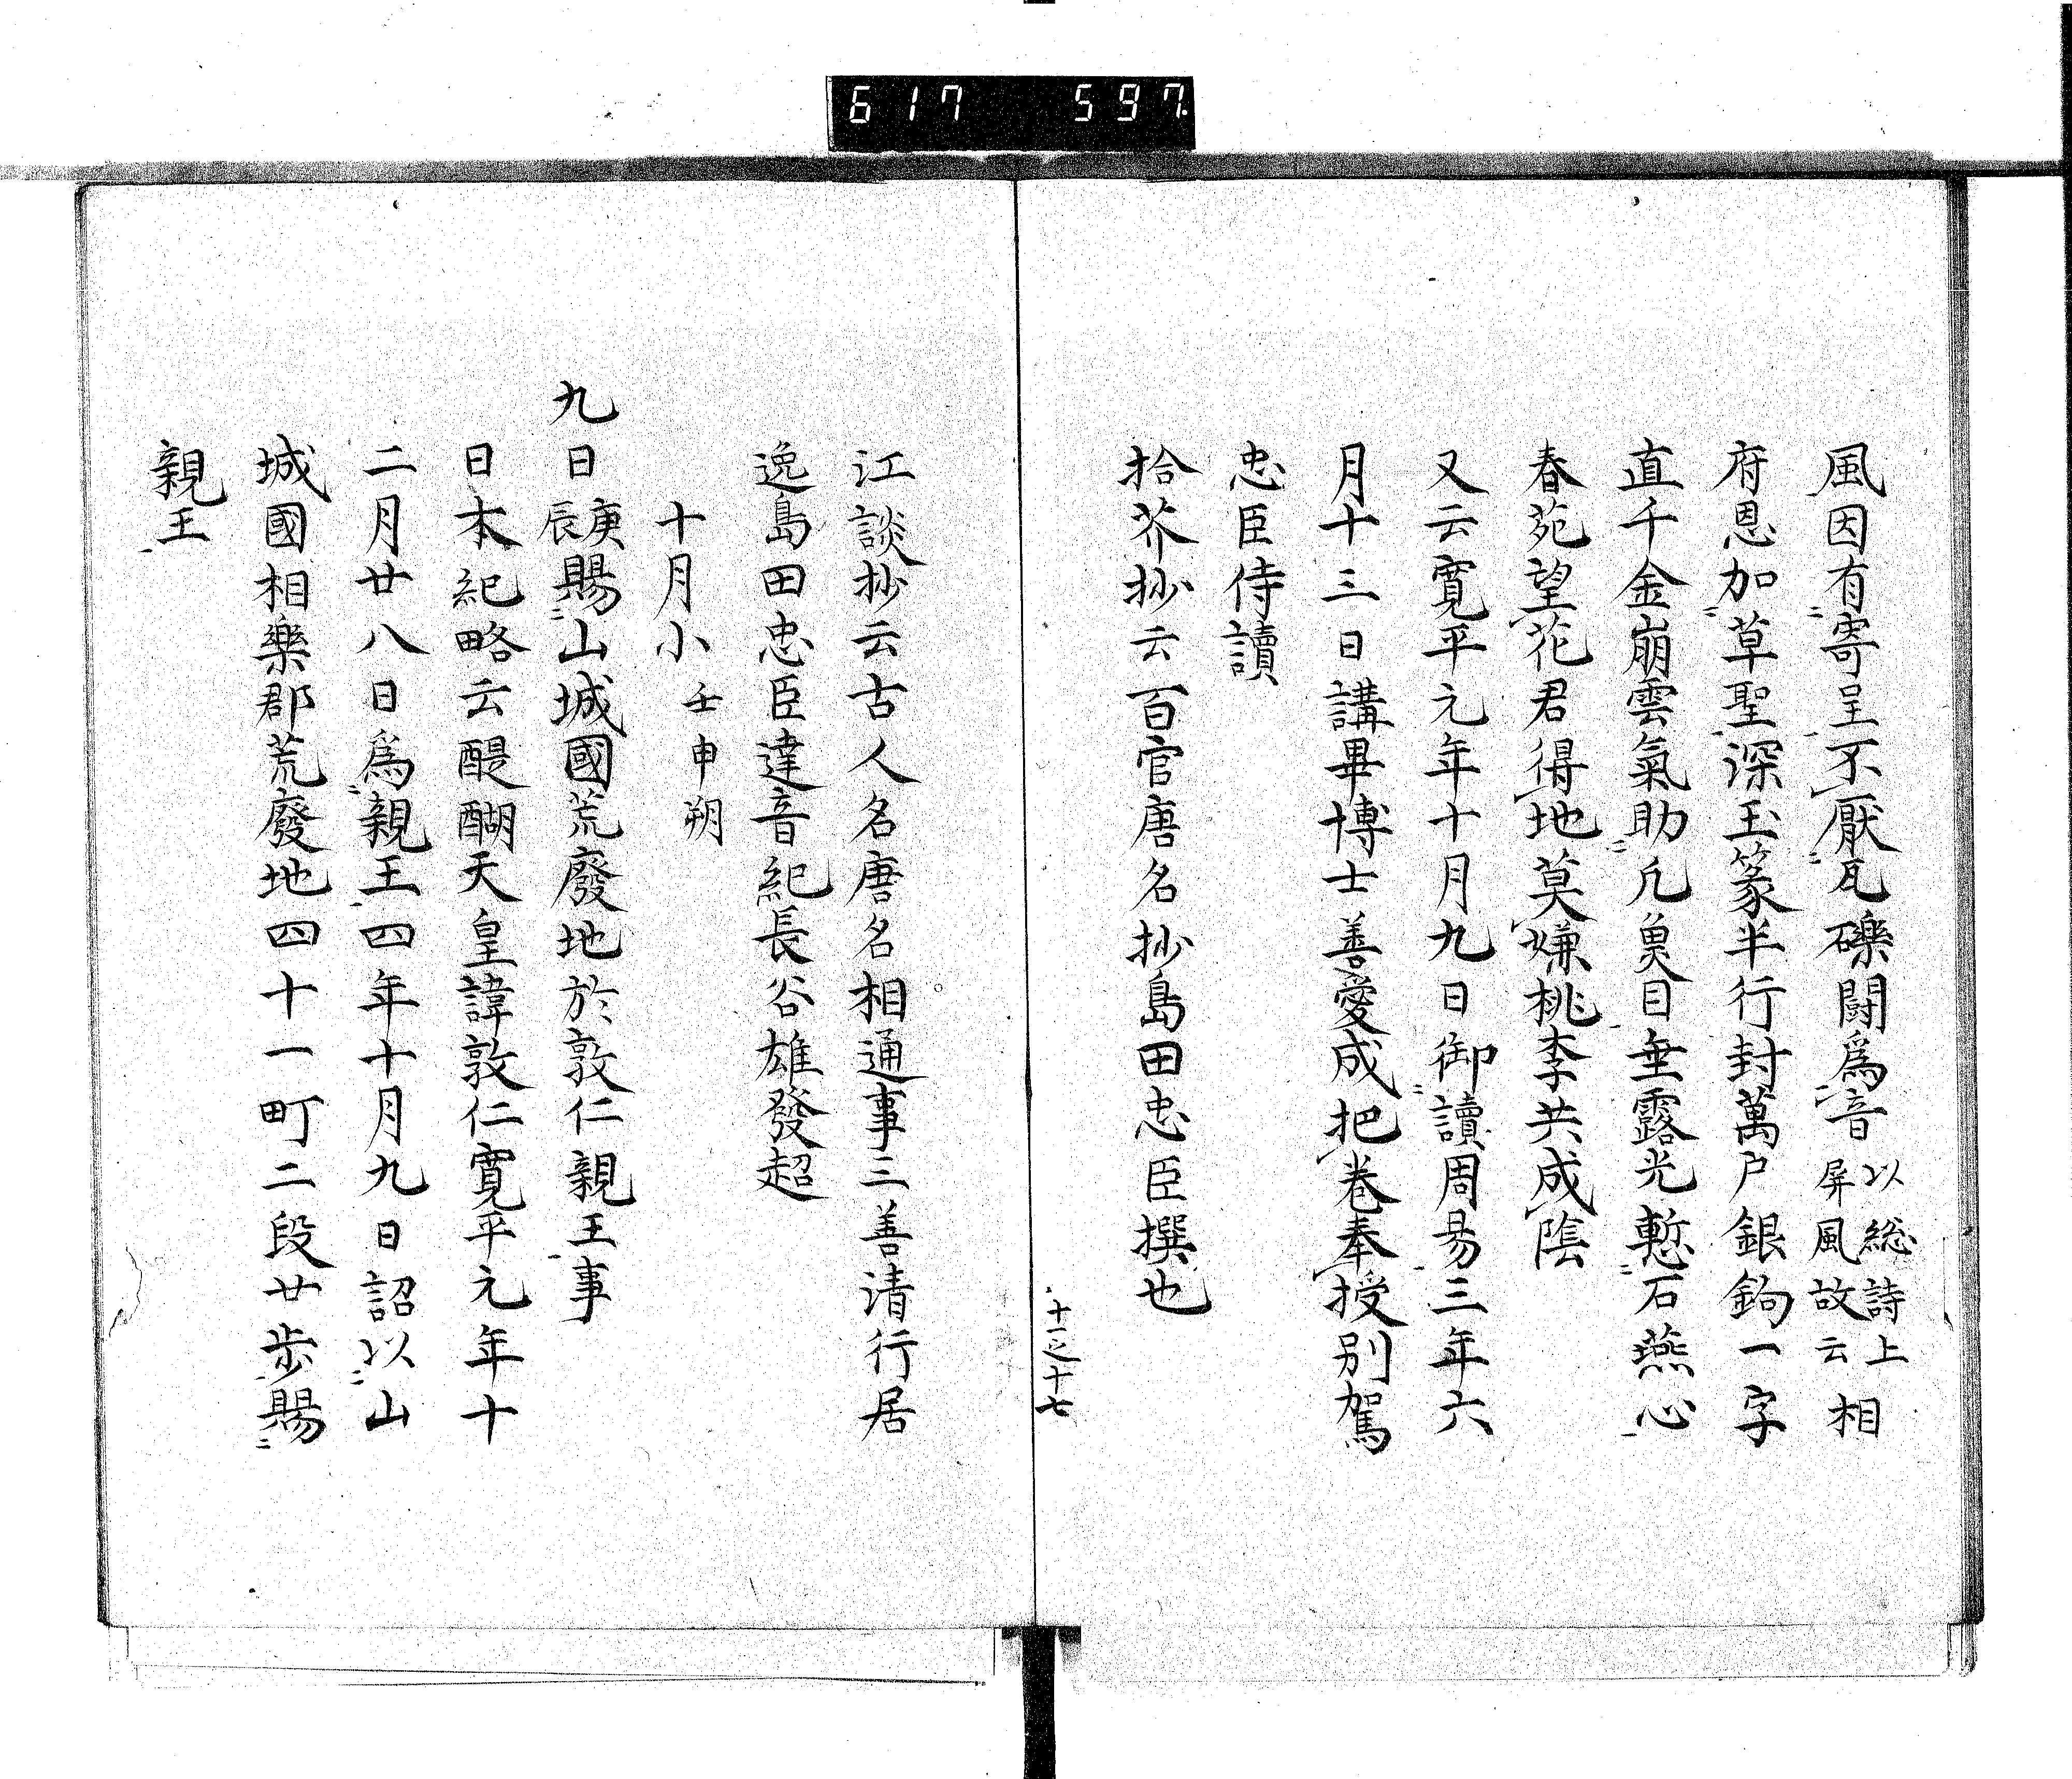 617 597.
風因有寄呈不厭瓦礫鬪爲音以総詩上屏風故云相
府恩加草聖深玉篆半行封萬户銀鉤一字
直千金崩雲氣助凢奠目垂露光慙石燕心
春苑望花君得地莫嫌桃李共成陰
又云寛平元年十月九日御讀周易三年六
月十三日講畢博士善愛成把卷奉授別駕
忠臣侍讀
拾芥抄云百官唐名抄島田忠臣撰也
十一之十七
江談抄云古人名唐名相通事三善清行居
逸島田忠臣達音紀長谷雄發超
十月小壬申朔
九日庚辰賜山城國荒廢地於敦仁親王事
日本紀略云醍醐天皇諱敦仁寛平元年十
二月廿八日爲親王四年十月九日詔以山
城國相樂郡荒廢地四十一町二段廿歩賜
親王